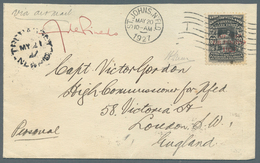 via air mail
ST. JOHN'S, N'F'L'D.
MAY 20
10-AM
1927
MY 21
27
Capt Victor Gordon
High Commissioner for Nfld
58, Victoria St
London S.W.
England
Personal